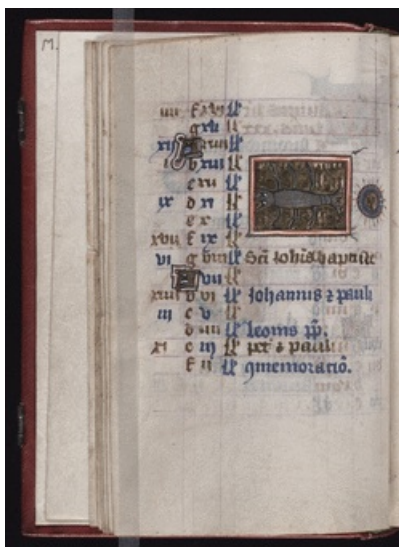 M.
f xvi kl
g xv kl
A xiiii kl
i b xiii kl
c xii kl
ix d xi kl
e x kl
xvii f ix kl
vi g viii kl Sci Iohis baptiste
A vii kl
xiiii b vi kl Johannis ⁊ pauli
iii c v kl
d iiii kl leonis pp.
xi e iii kl pet ⁊ pauli
f ii kl ꝯmemoratiō.